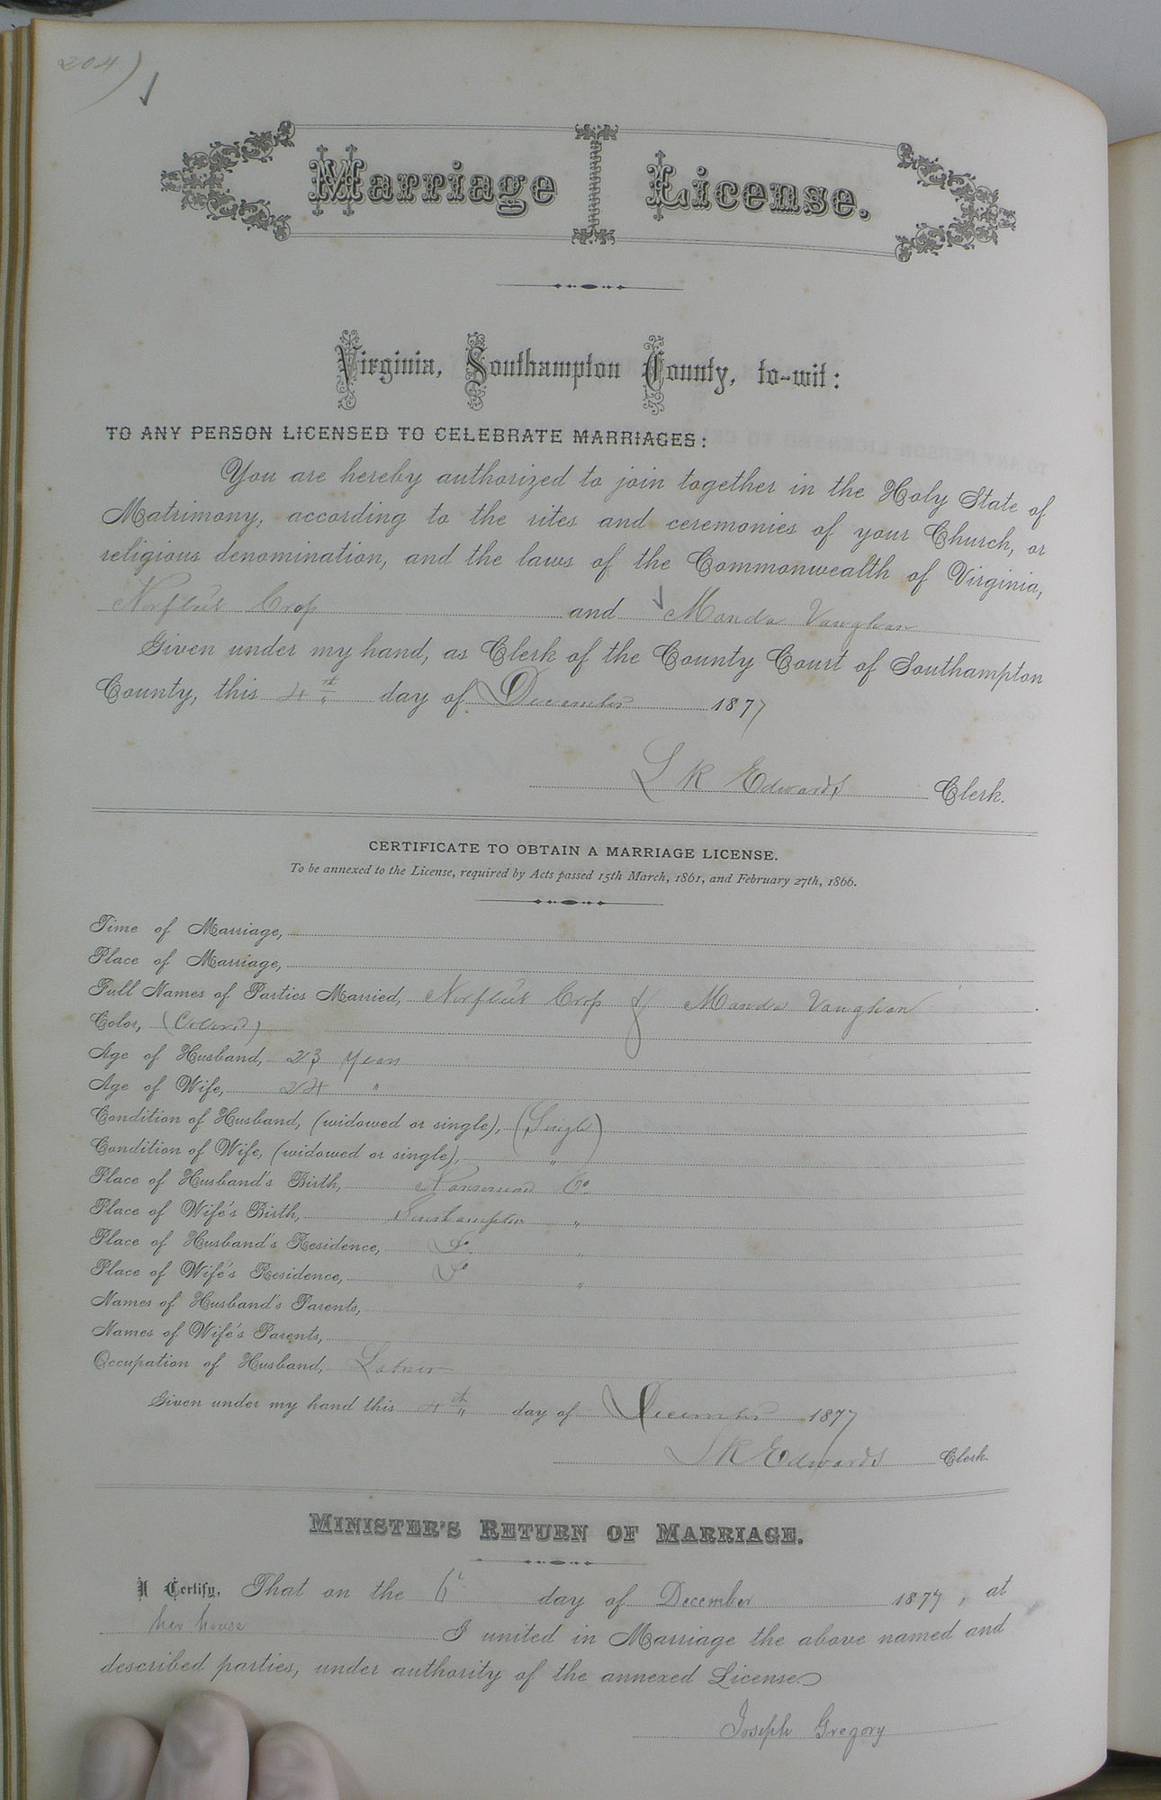 204)
Marriage License.
Virginia, Southampton County, to-wit:
TO ANY PERSON LICENSED TO CELEBRATE MARRIAGES:
You are hereby authorized to join together in the Holy State of
Matrimony, according to the rites and ceremonies of your Church, or
religious denomination, and the laws of the Commonwealth of Virginia,
Norfleet Crop and Manda Vaughan
Given under my hand, as Clerk of the County Court of Southampton
County, this 4th day of December 1877
L R Edwards Clerk.
CERTIFICATE TO OBTAIN A MARRIAGE LICENSE.
To be annexed to the License, required by Acts passed 15th March, 1861, and February 27th, 1866.
Time of Marriage,
Place of Marriage,
Full Names of Parties Married, Norfleet Crop & Manda Vaughan
Color, (Colored)
Age of Husband, 23 years
Age of Wife, 24 "
Condition of Husband, (widowed or single), (Single)
Condition of Wife, (widowed or single), "
Place of Husband's Birth, Nansemond Co.
Place of Wife's Birth, Southampton "
Place of Husband's Residence, Do "
Place of Wife's Residence, Do "
Names of Husband's Parents,
Names of Wife's Parents,
Occupation of Husband, Laborer
Given under my hand this 4th day of December 1877
L R Edwards Clerk
MINISTER'S RETURN OF MARRIAGE.
I Certify, That on the 6 day of December 1877, at
her house I united in Marriage the above named and
described parties, under authority of the annexed License.
Joseph Gregory